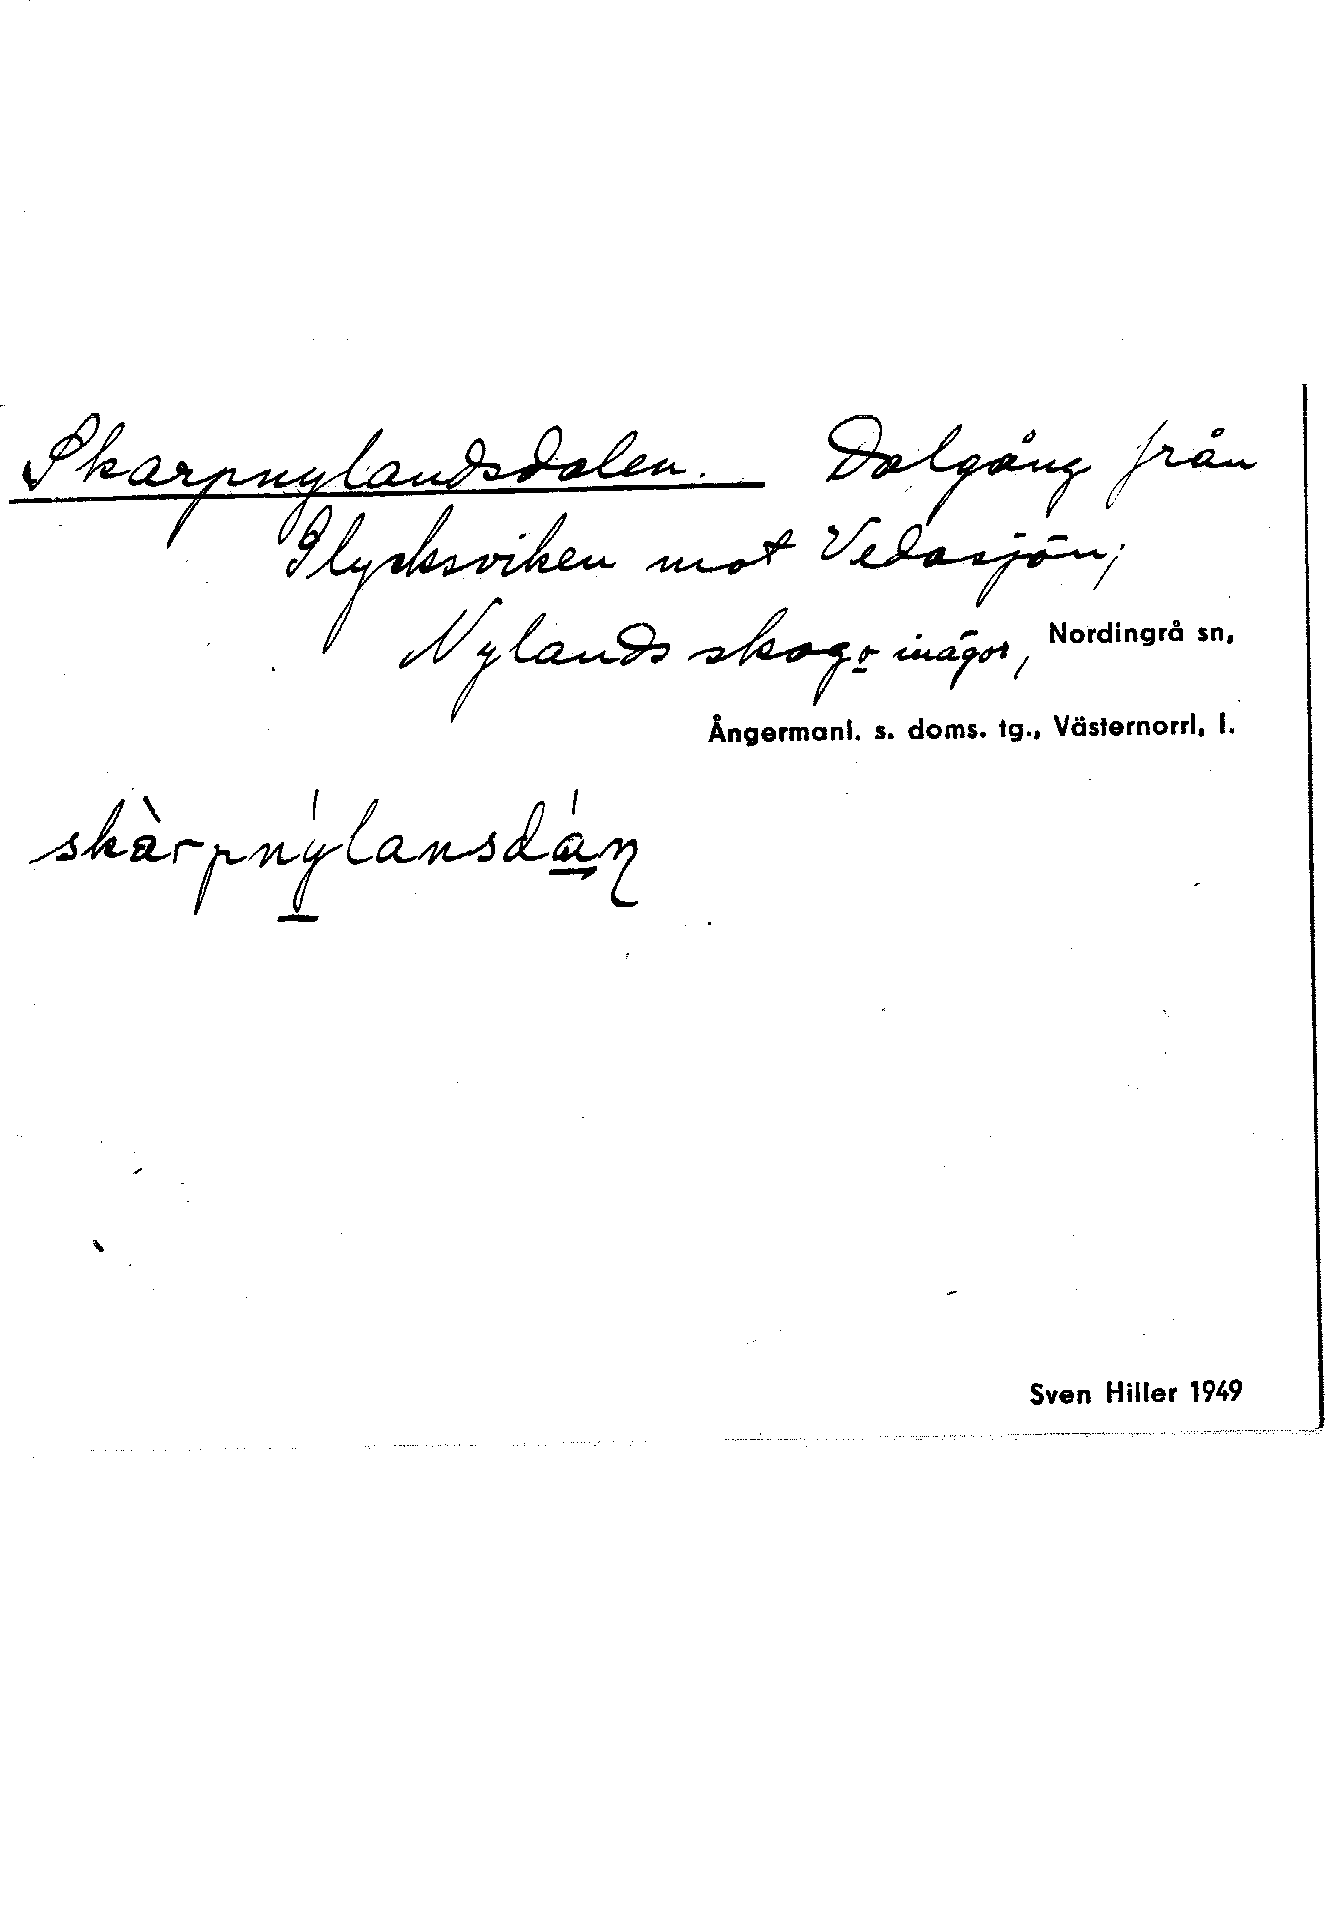 Skarpnylandsdalen. Dalgång från
Slycksviken mot Vedasjön;
Nylands skog o inägor, Nordingrå sn,
Ångermanl. s. doms. tg., Västernorrl. l.
skàrpnýlansdáṇ
Sven Hiller 1949